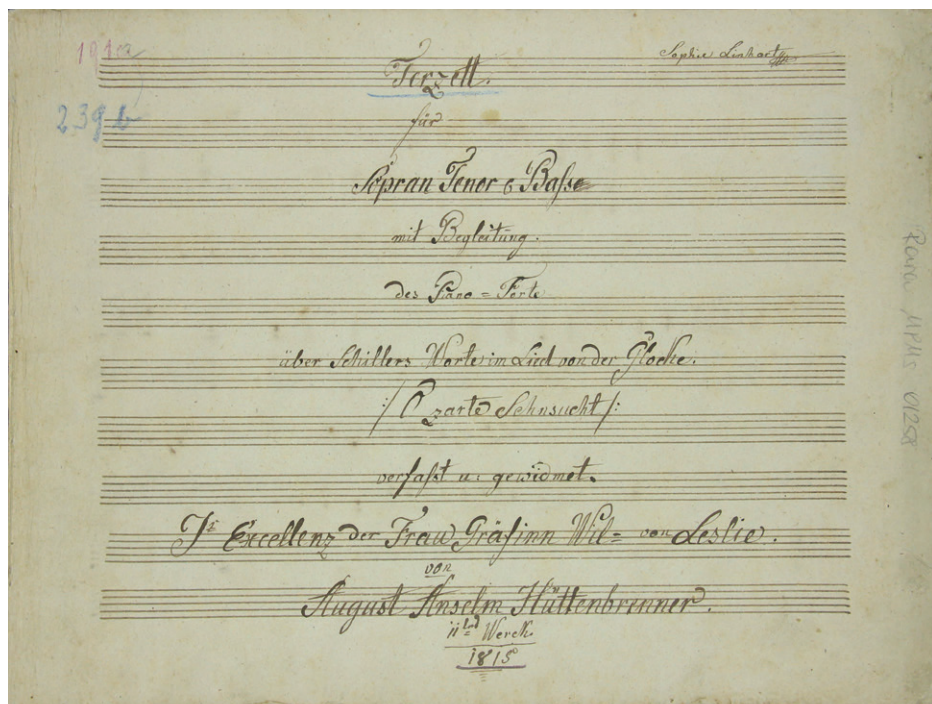 191a
Sophie Linhart
Terzett.
239 b
für
Sopran Tenor & Baſse
mit Begleitung.
des Piano = Forte
über Schillers Worte im Lied von der Glocke.
/: O zarte Sehnsucht /:
verfaßt u: gewidmet.
Excellenz der Frau Gräfinn Wil= von Leslie.
von
August Anselm Hüttenbrenner.
Werck
1815
01258